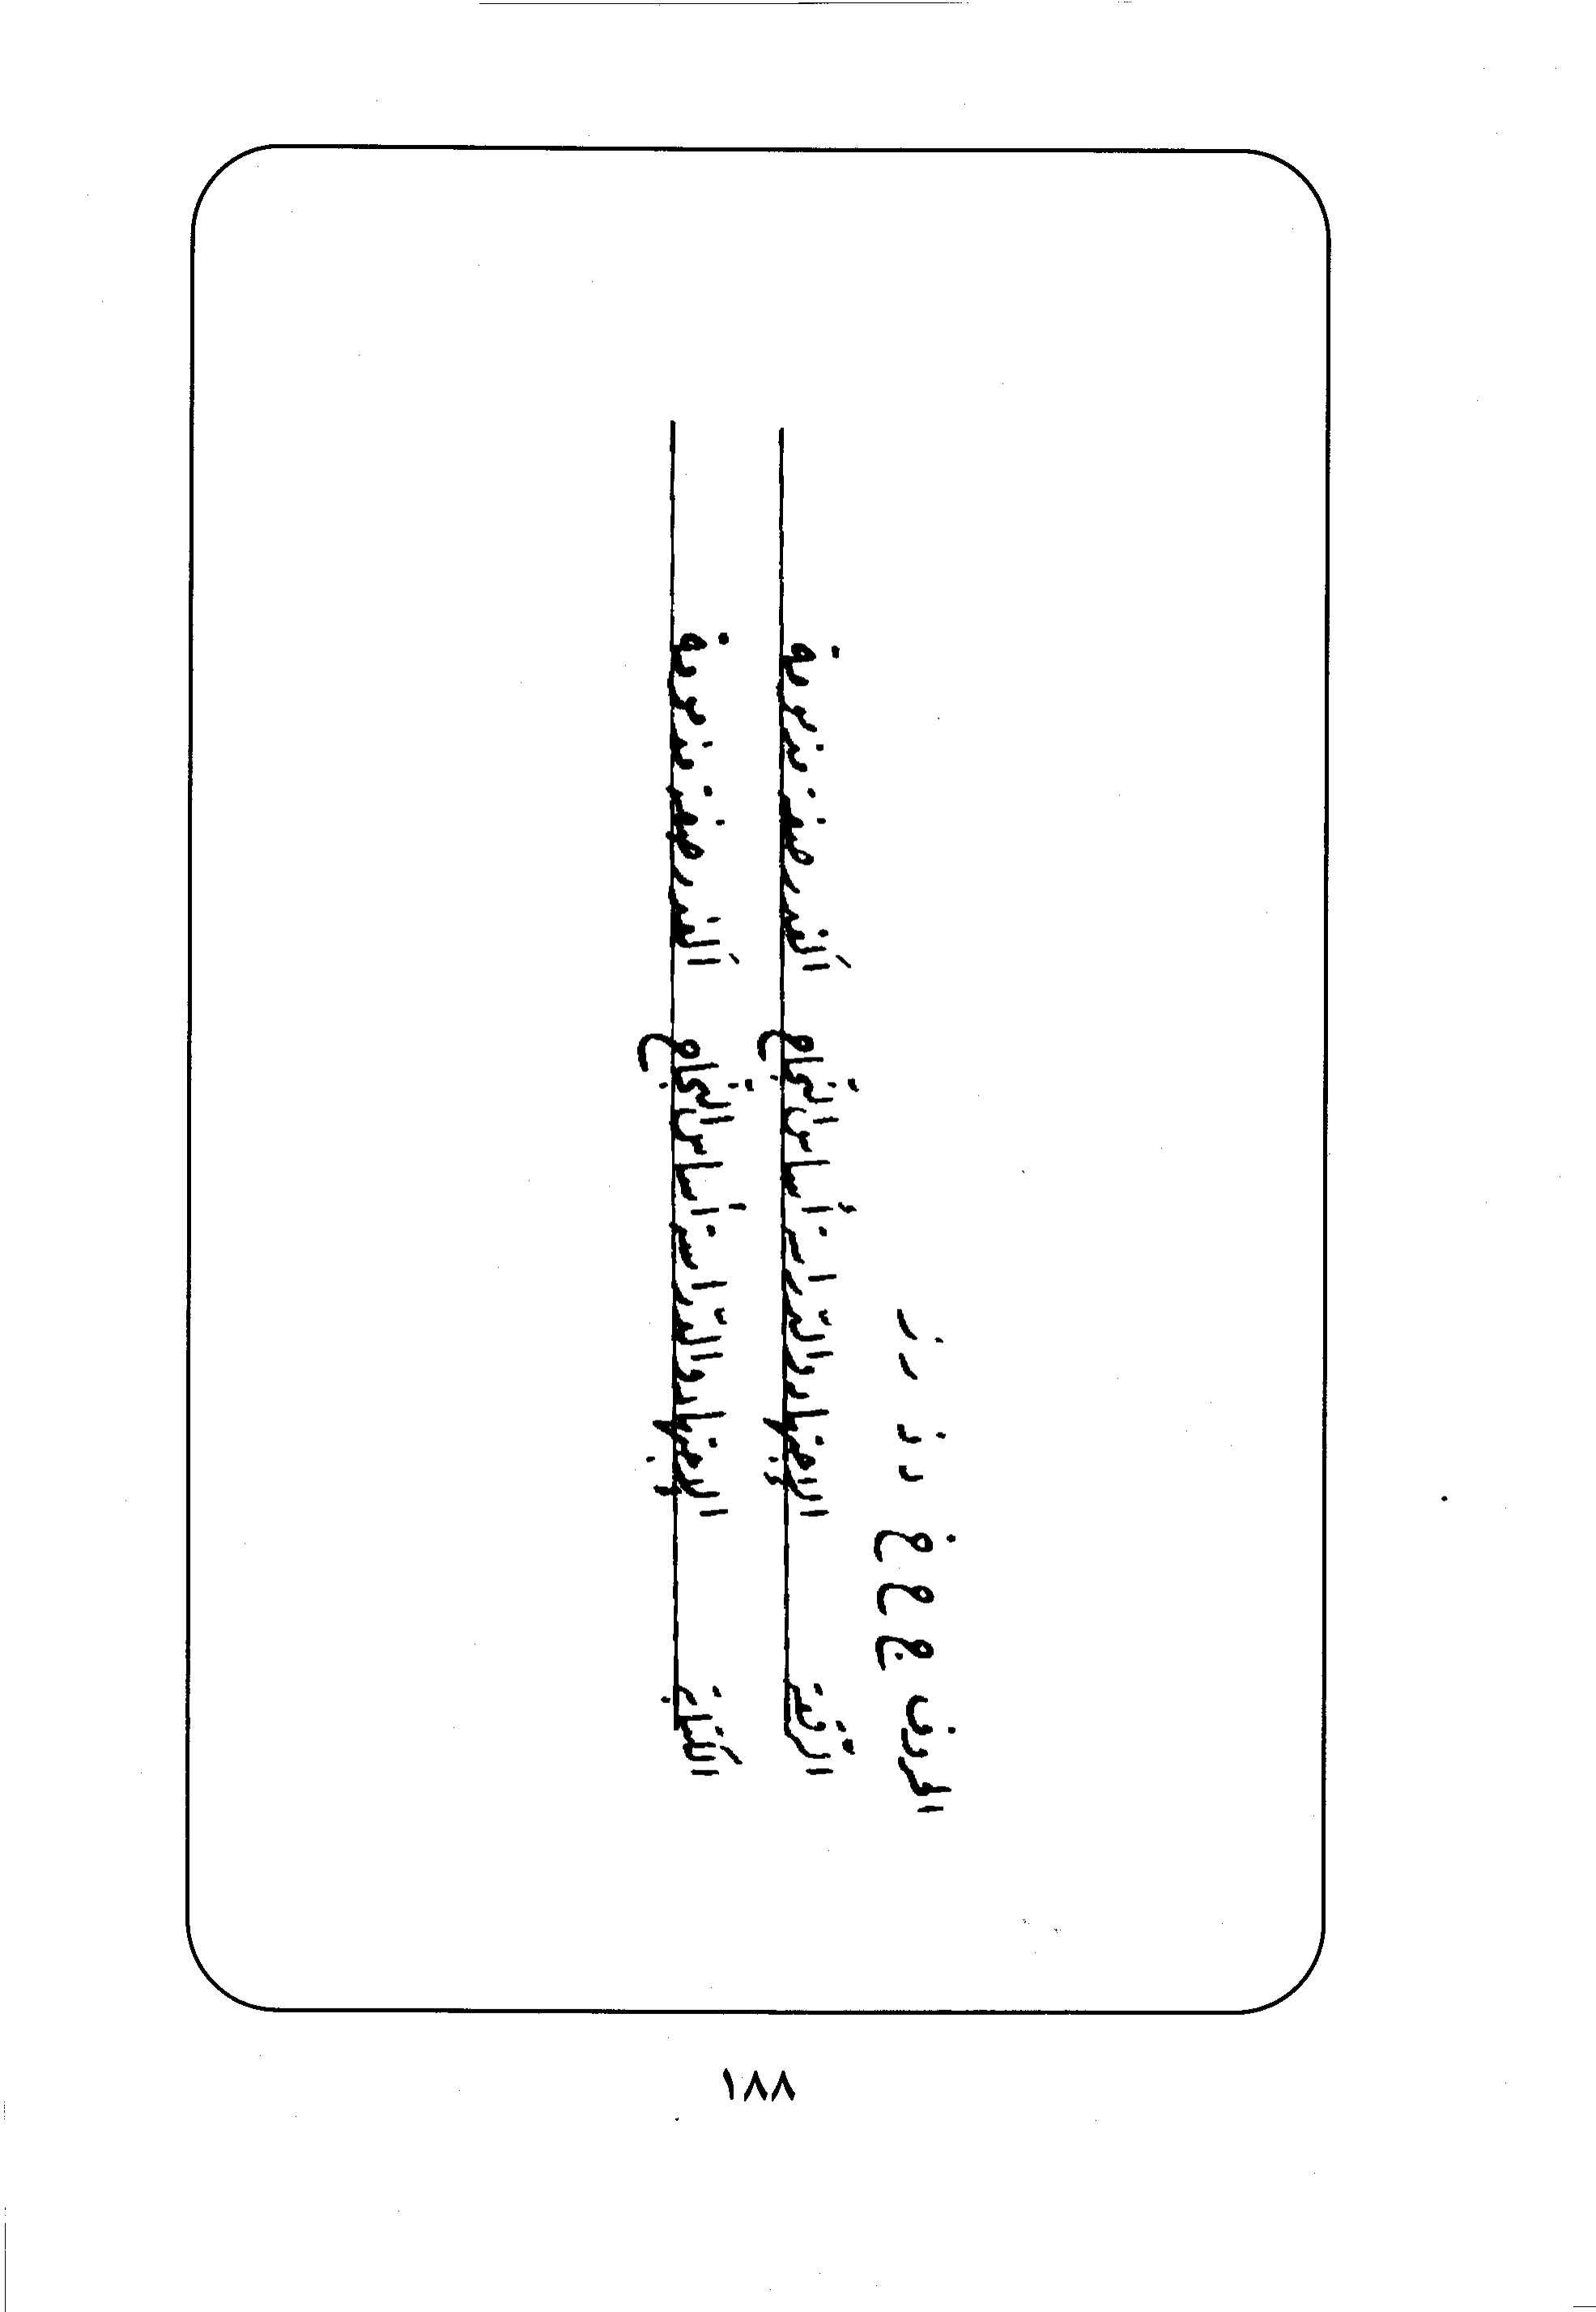 الحروف ج ح خ د ذ ر ز
الرّقعة الإجتهاد والدّراسة أساس النّجاح الغدر صفة مذمومة
الكتابة الإجتهاد والدّراسة أساس النّجاح الغدر صفة مذمومة
١٨٨